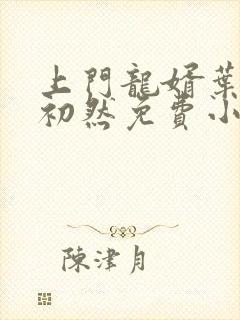 上門龍婿葉
初然免費小
陳津月